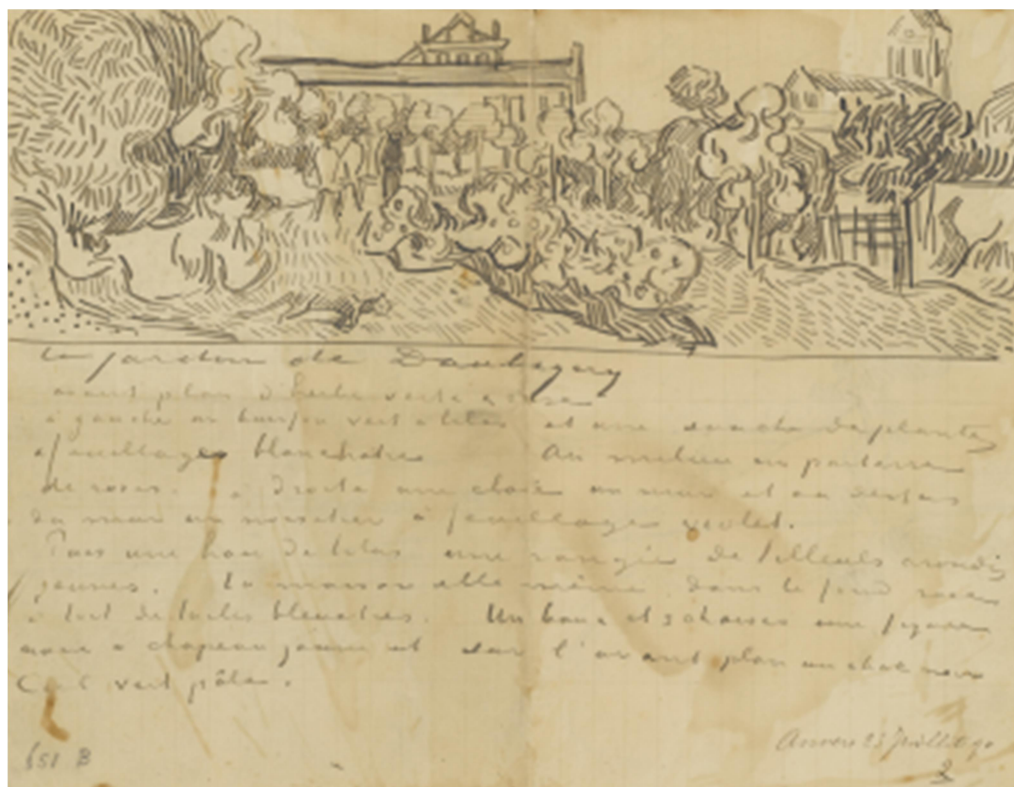 le jardin de Daubigny
avant plan d'herbe verte & rose
à gauche un buisson vert & lilas et une souche de plantes
à feuillages blanchâtres Au milieu un parterre
de roses. à droite une claie un mur et au dessus
du mur un noisetier à feuillage violet.
Puis une haie de lilas une rangée de tilleuls arrondis
jaunes. La maison elle même dans le fond rose
à toit de tuiles bleuâtres. Un banc et 3 chaises une figure
noire à chapeau jaune et sur l'avant plan un chat noir
Ciel vert pâle.
Auvers 23 Juillet 90
651 B
2